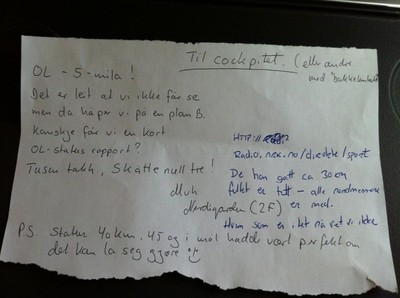 Til cockpitet. (eller andre
med bakkekontakt
OL - 5-mila!
Det er leit at vi ikke får se
men da håper vi på en plan B.
Kanskje får vi en kort
OL-status rapport?
Tusen takk, Skatte null tre!
Mvh
Nerdigarden (2F)
P.S. Status 40 km, 45 og i mål hadde vært perfekt om
det kan la seg gjøre
HTTP://
Radio.nrk.no/direkte/sport
De har gått ca 30 km
feltet er tett - alle nordmennene
er med.
Hvem som er i tet nå vet vi ikke